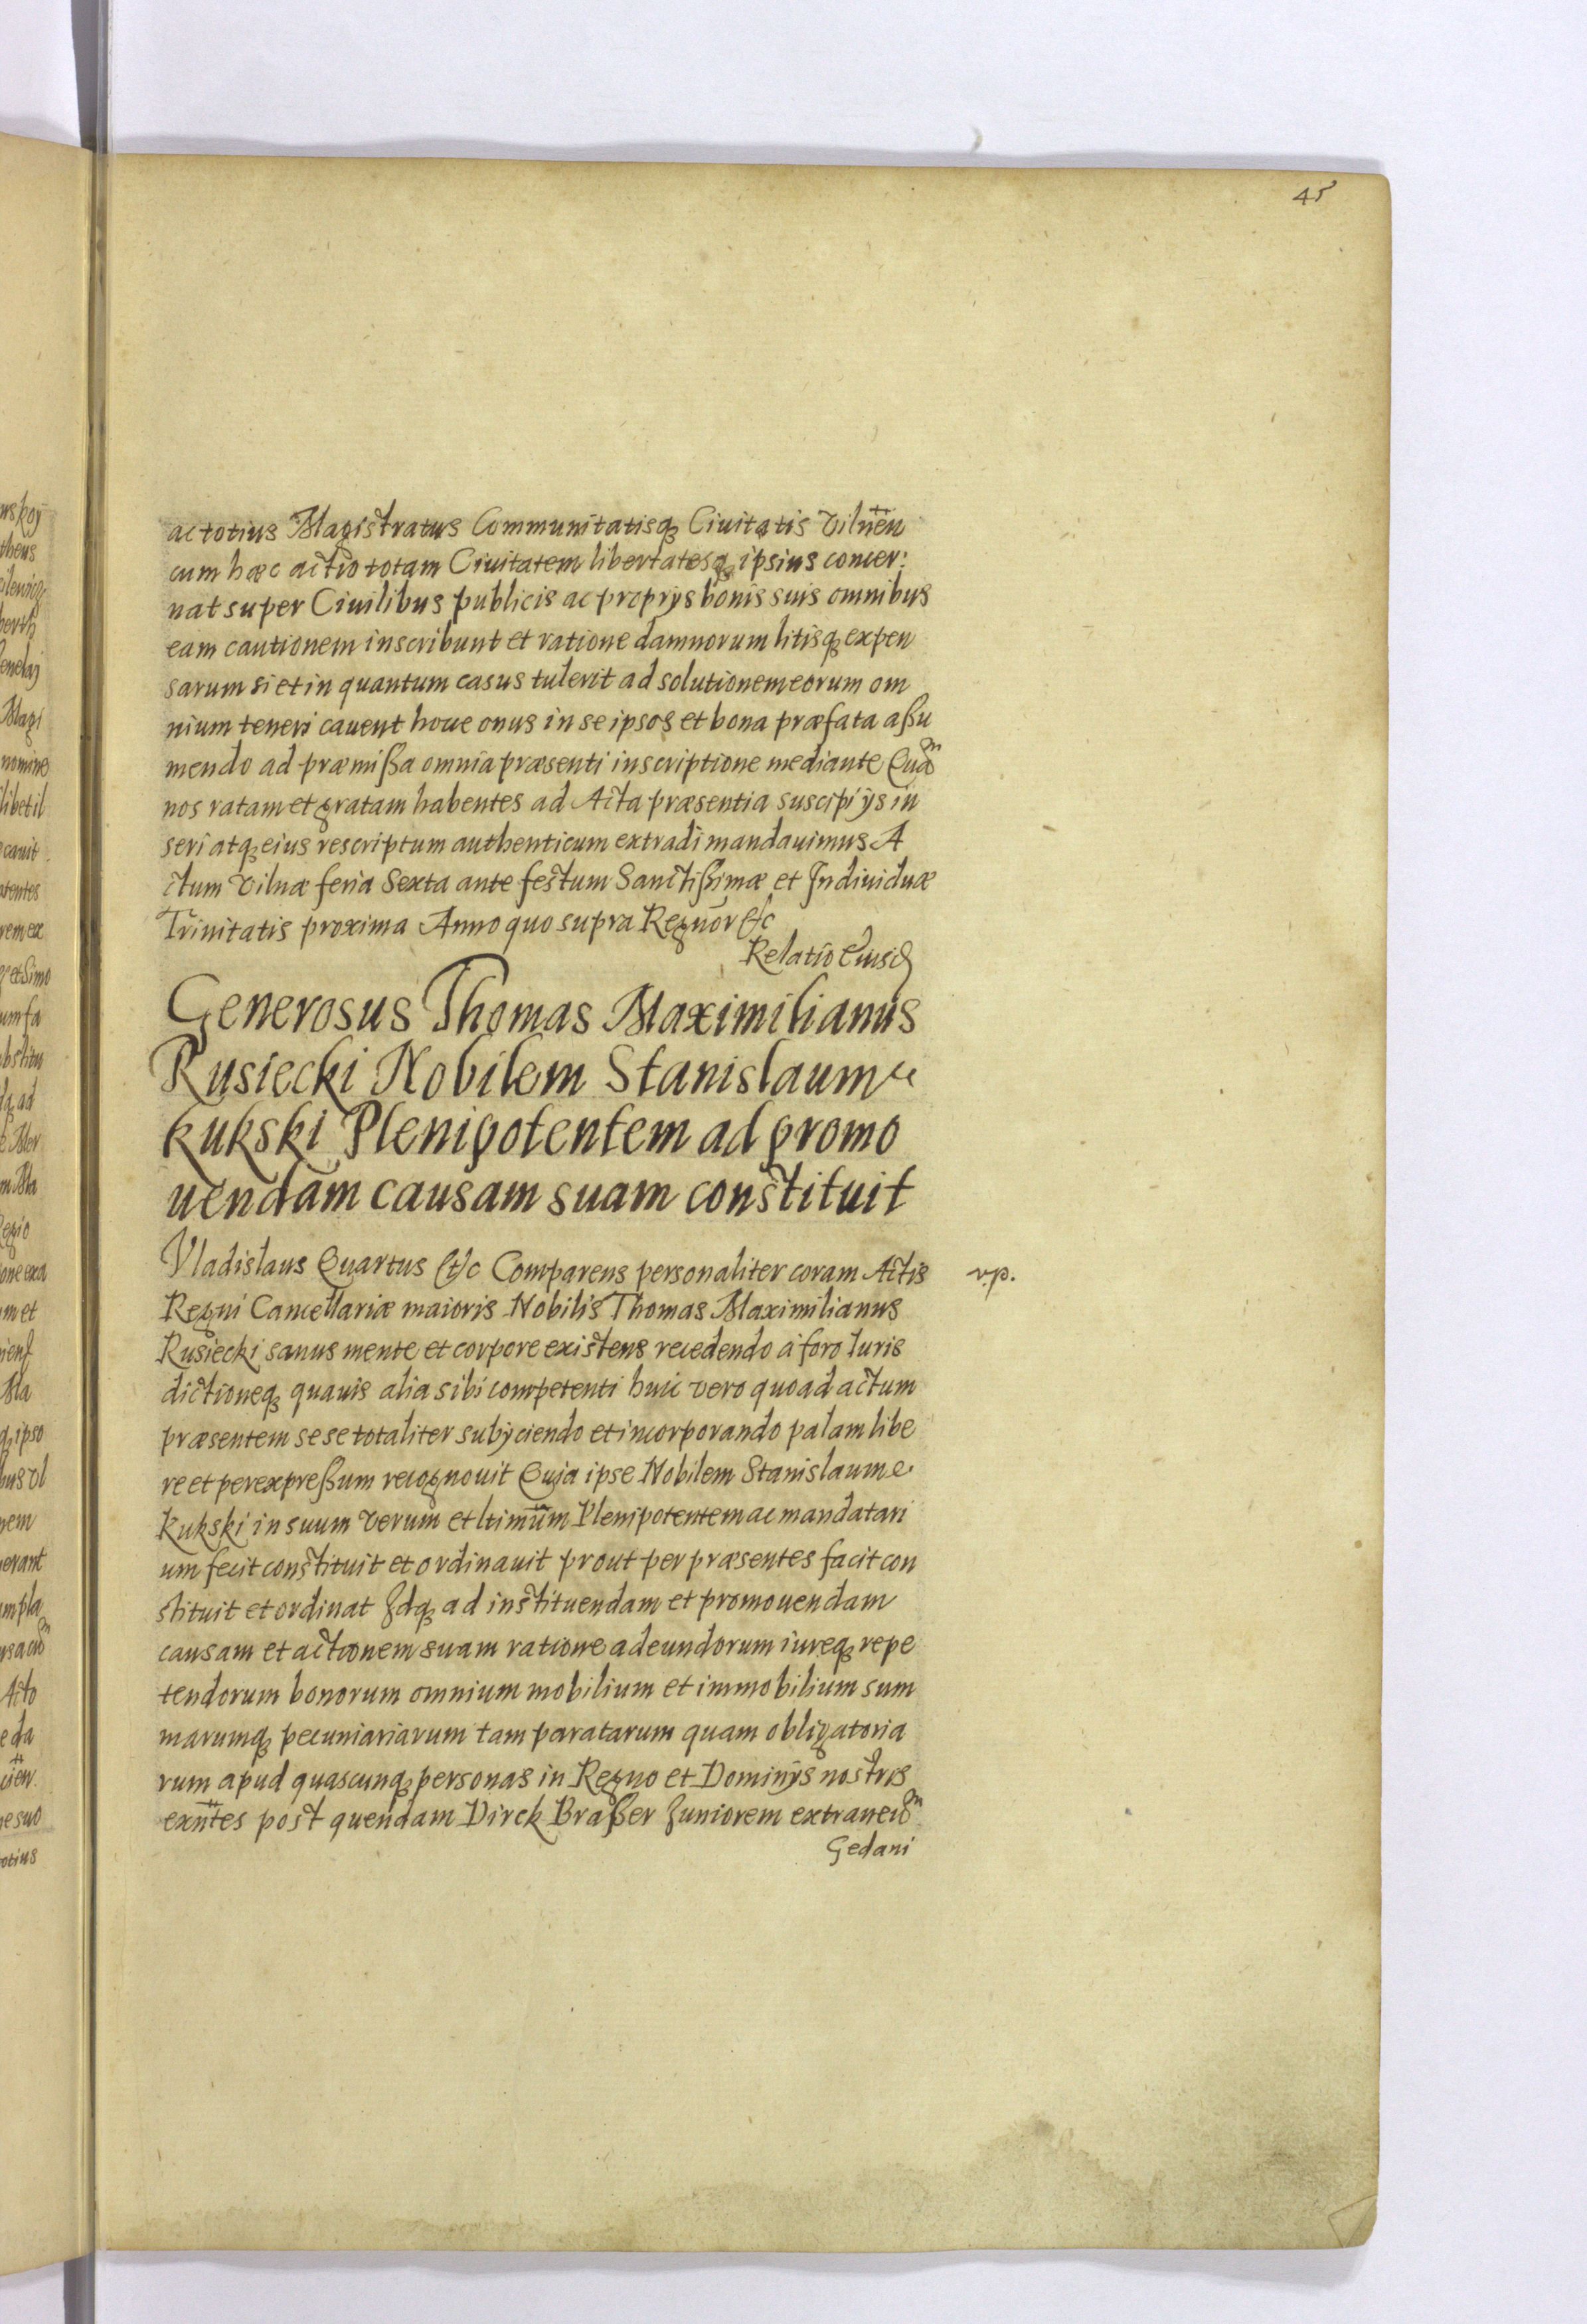 45
ac totius Magistratus Communitatisq; Ciuitatis Vilnen
cum hæc actio totam Ciuitatem libertatesq; ipsius concer:
nat super Ciuilibus publicis ac proprijs bonis suis omnibus
eam cautionem inscribunt et ratione damnorum litisq; expen
sarum si et in quantum casus tulerit ad solutionem eorum om
nium teneri cauent hoce onus in se ipsos et bona præfata aßu
mendo ad præmißa omnia præsenti inscriptione mediante Quã
nos ratam et gratam habentes ad Acta præsentia suscipi ijs in
seri atq; eius rescriptum authenticum extradi mandauimus A
ctum Vilnæ feria Sexta ante festum Sanctißimæ et Indiuiduæ
Trinitatis proxima Anno quo supra Regnor̃ &c
Relatio Eiusd
Generosus Thomas Maximilianus
Rusiecki Nobilem Stanislaum
Kukski Plenipotentem ad promo
uendam causam suam constituit
Vladislaus Quartus &c Comparens personaliter coram Actis
v.p.
Regni Cancellariæ maioris Nobilis Thomas Maximilianus
Rusiecki sanus mente et corpore existens recedendo à foro Iuris
dictioneq; quauis alia sibi competenti huic vero quoad actum
præsentem sese totaliter subijciendo et incorporando palam libe
re et per expreßum recognouit Quia ipse Nobilem Stanislaum
Kukski in suum verum et ltimũm Plenipotentem ac mandatari
um fecit constituit et ordinauit prout per præsentes facit con
stituit et ordinat Idq; ad instituendam et promouendam
causam et actionem suam ratione adeundorum iureq; repe
tendorum bonorum omnium mobilium et immobilium sum
marumq; pecuniariarum tam paratarum quam obligatoria
rum apud quascunq; personas in Regno et Dominijs nostris
exñtes post quendam Dirck Braßer Juniorem extraneũ
Gedani